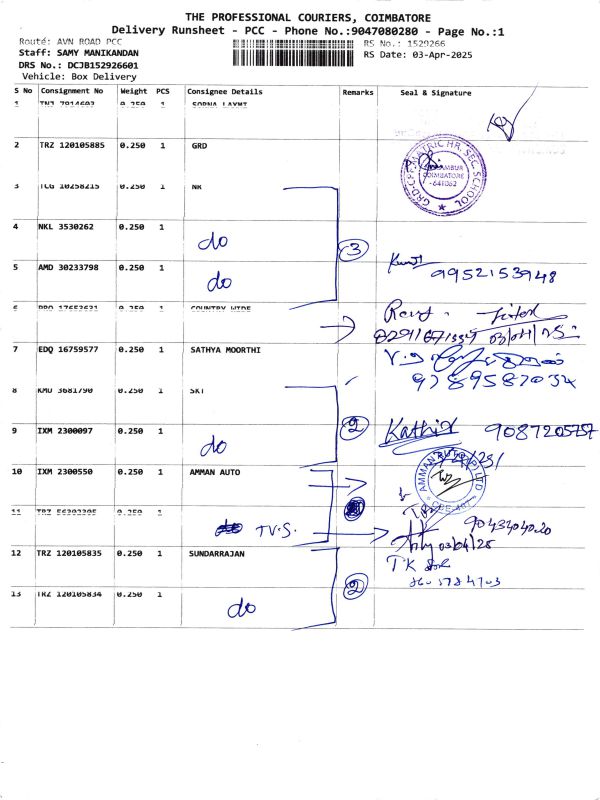 THE PROFESSIONAL COURIERS, COIMBATORE
Delivery Runsheet - PCC - Phone No.:9047080280 - Page No.:1
Route: AVN ROAD PCC
RS No.: 1529266
Staff: SAMY MANIKANDAN
RS Date: 03-Apr-2025
DRS No.: DCJB152926601
Vehicle: Box Delivery
S No Consignment No Weight PCS Consignee Details Remarks Seal & Signature
1 0.250 1 SORNA LAXMI
2 TRZ 120105885 0.250 1 GRD
GRD-CPF MATRIC HR. SEC. SCHOOL
COIMBATORE
-641062
3 TCG 10258215 0.250 1 NR
4 NKL 3530262 0.250 1 do
3
5 AMD 30233798 0.250 1 do
9952153948
6 0.250 1 COUNTRY WIDE
7 EDQ 16759577 0.250 1 SATHYA MOORTHI
9789587034
8 KMU 3681790 0.250 1 SKT
9 IXM 2300097 0.250 1 do
2
Kathir 9087205757
10 IXM 2300550 0.250 1 AMMAN AUTO
AMMAN AUTO P LTD
11 0.250 1
TV.S.
03/04/25
12 TRZ 120105835 0.250 1 SUNDARRAJAN
T K
2
13 TRZ 120105834 0.250 1 do